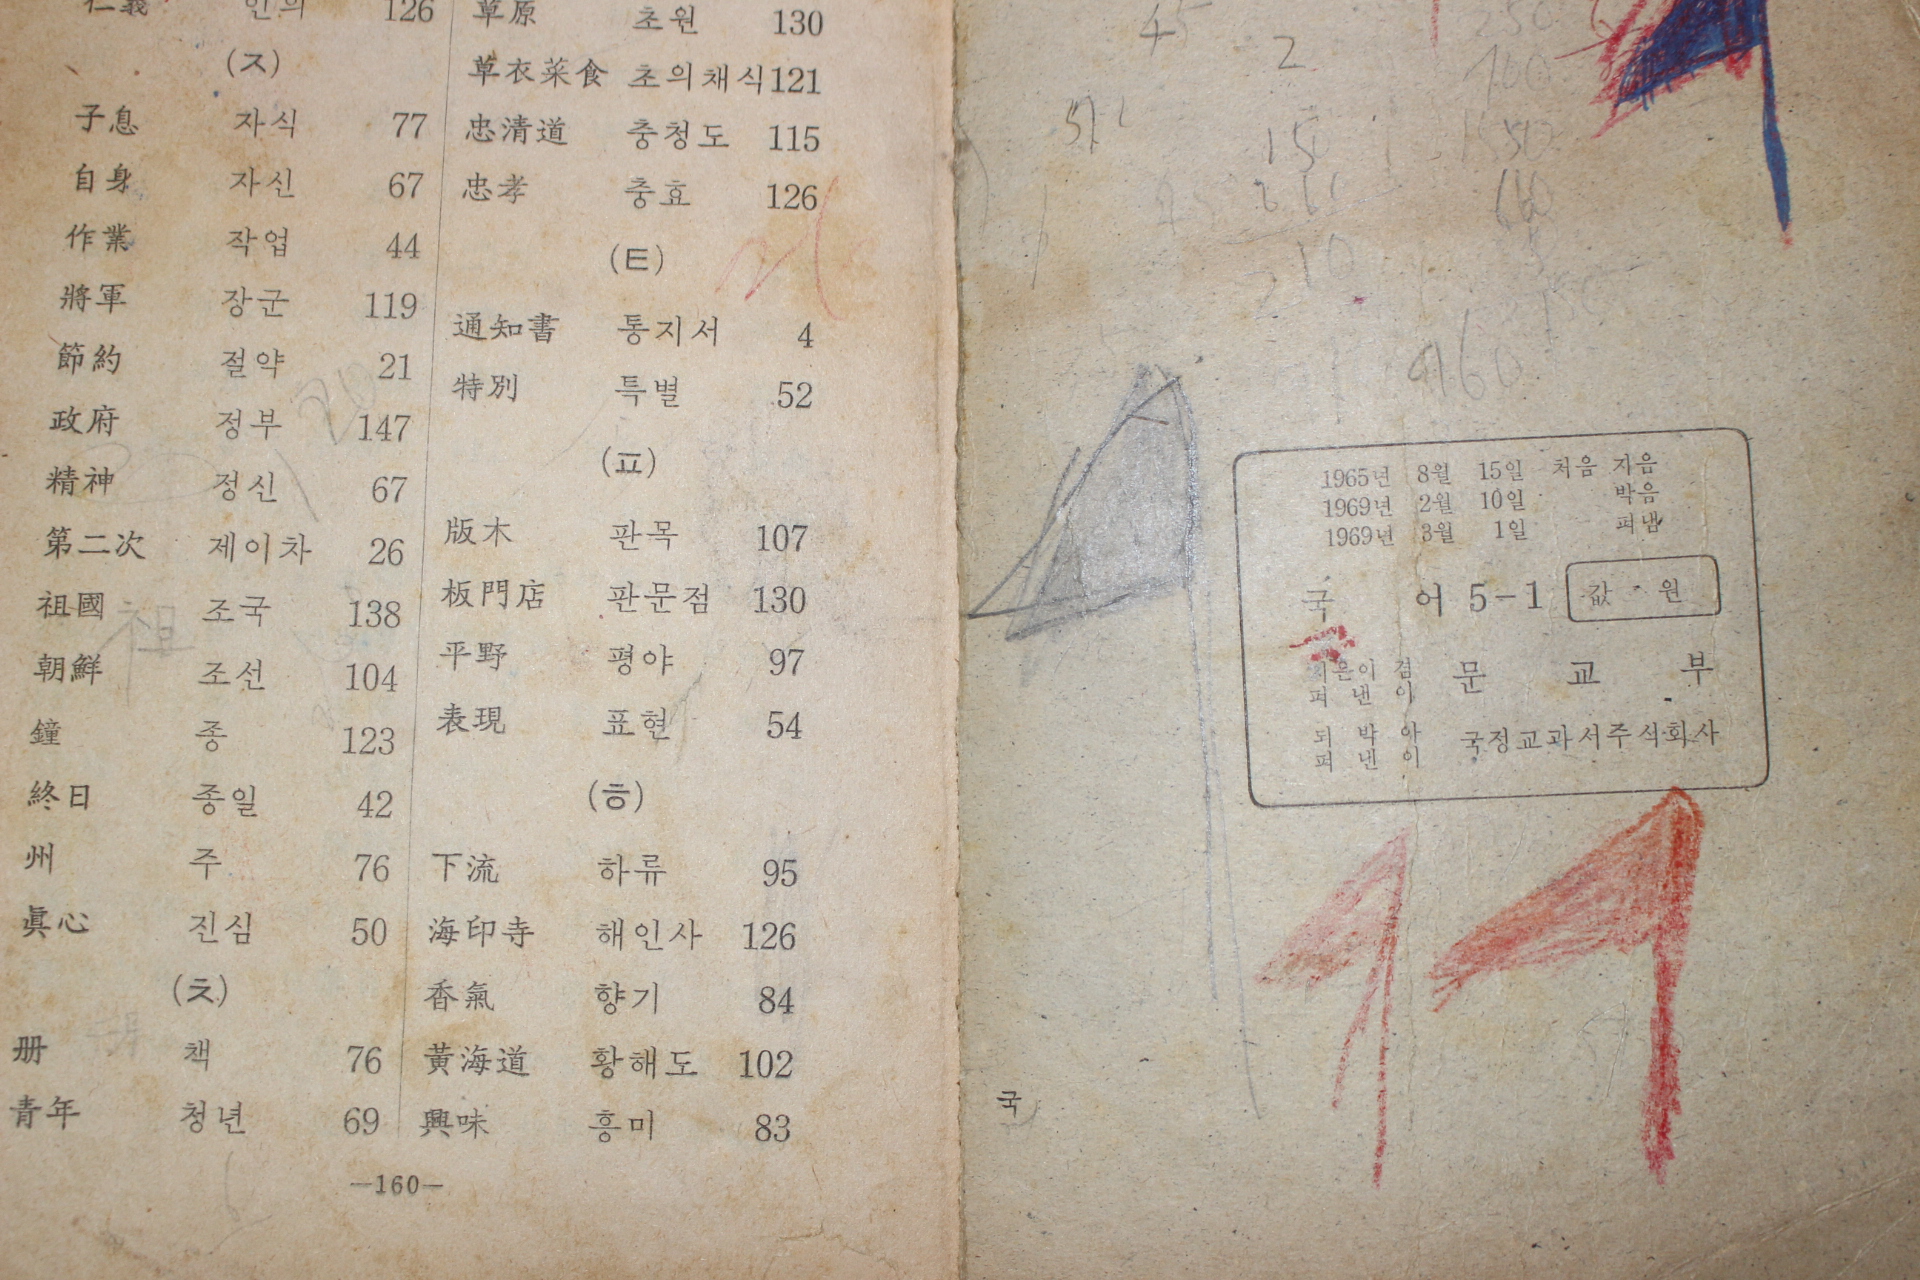 仁義 인의 126
(ㅈ)
子息 자식 77
自身 자신 67
作業 작업 44
將軍 장군 119
節約 절약 21
政府 정부 147
精神 정신 67
第二次 제이차 26
祖國 조국 138
祖
朝鮮 조선 104
鐘 종 123
終日 종일 42
州 주 76
眞心 진심 50
(ㅊ)
册 책 76
靑年 청년 69
草原 초원 130
草衣菜食 초의채식 121
忠淸道 충청도 115
忠孝 충효 126
(ㅌ)
通知書 통지서 4
特別 특별 52
(ㅍ)
版木 판목 107
板門店 판문점 130
平野 평야 97
表現 표현 54
(ㅎ)
下流 하류 95
海印寺 해인사 126
香氣 향기 84
黃海道 황해도 102
興味 흥미 83
—160—
45
2
15
210
250
160
1965년 8월 15일 처음 지음
1969년 2월 10일 박음
1969년 3월 1일 펴냄
국 어 5-1 값 원
지은이 겸
펴 낸 이
문 교 부
되 박 아
펴 낸 이
국정교과서주식회사
국